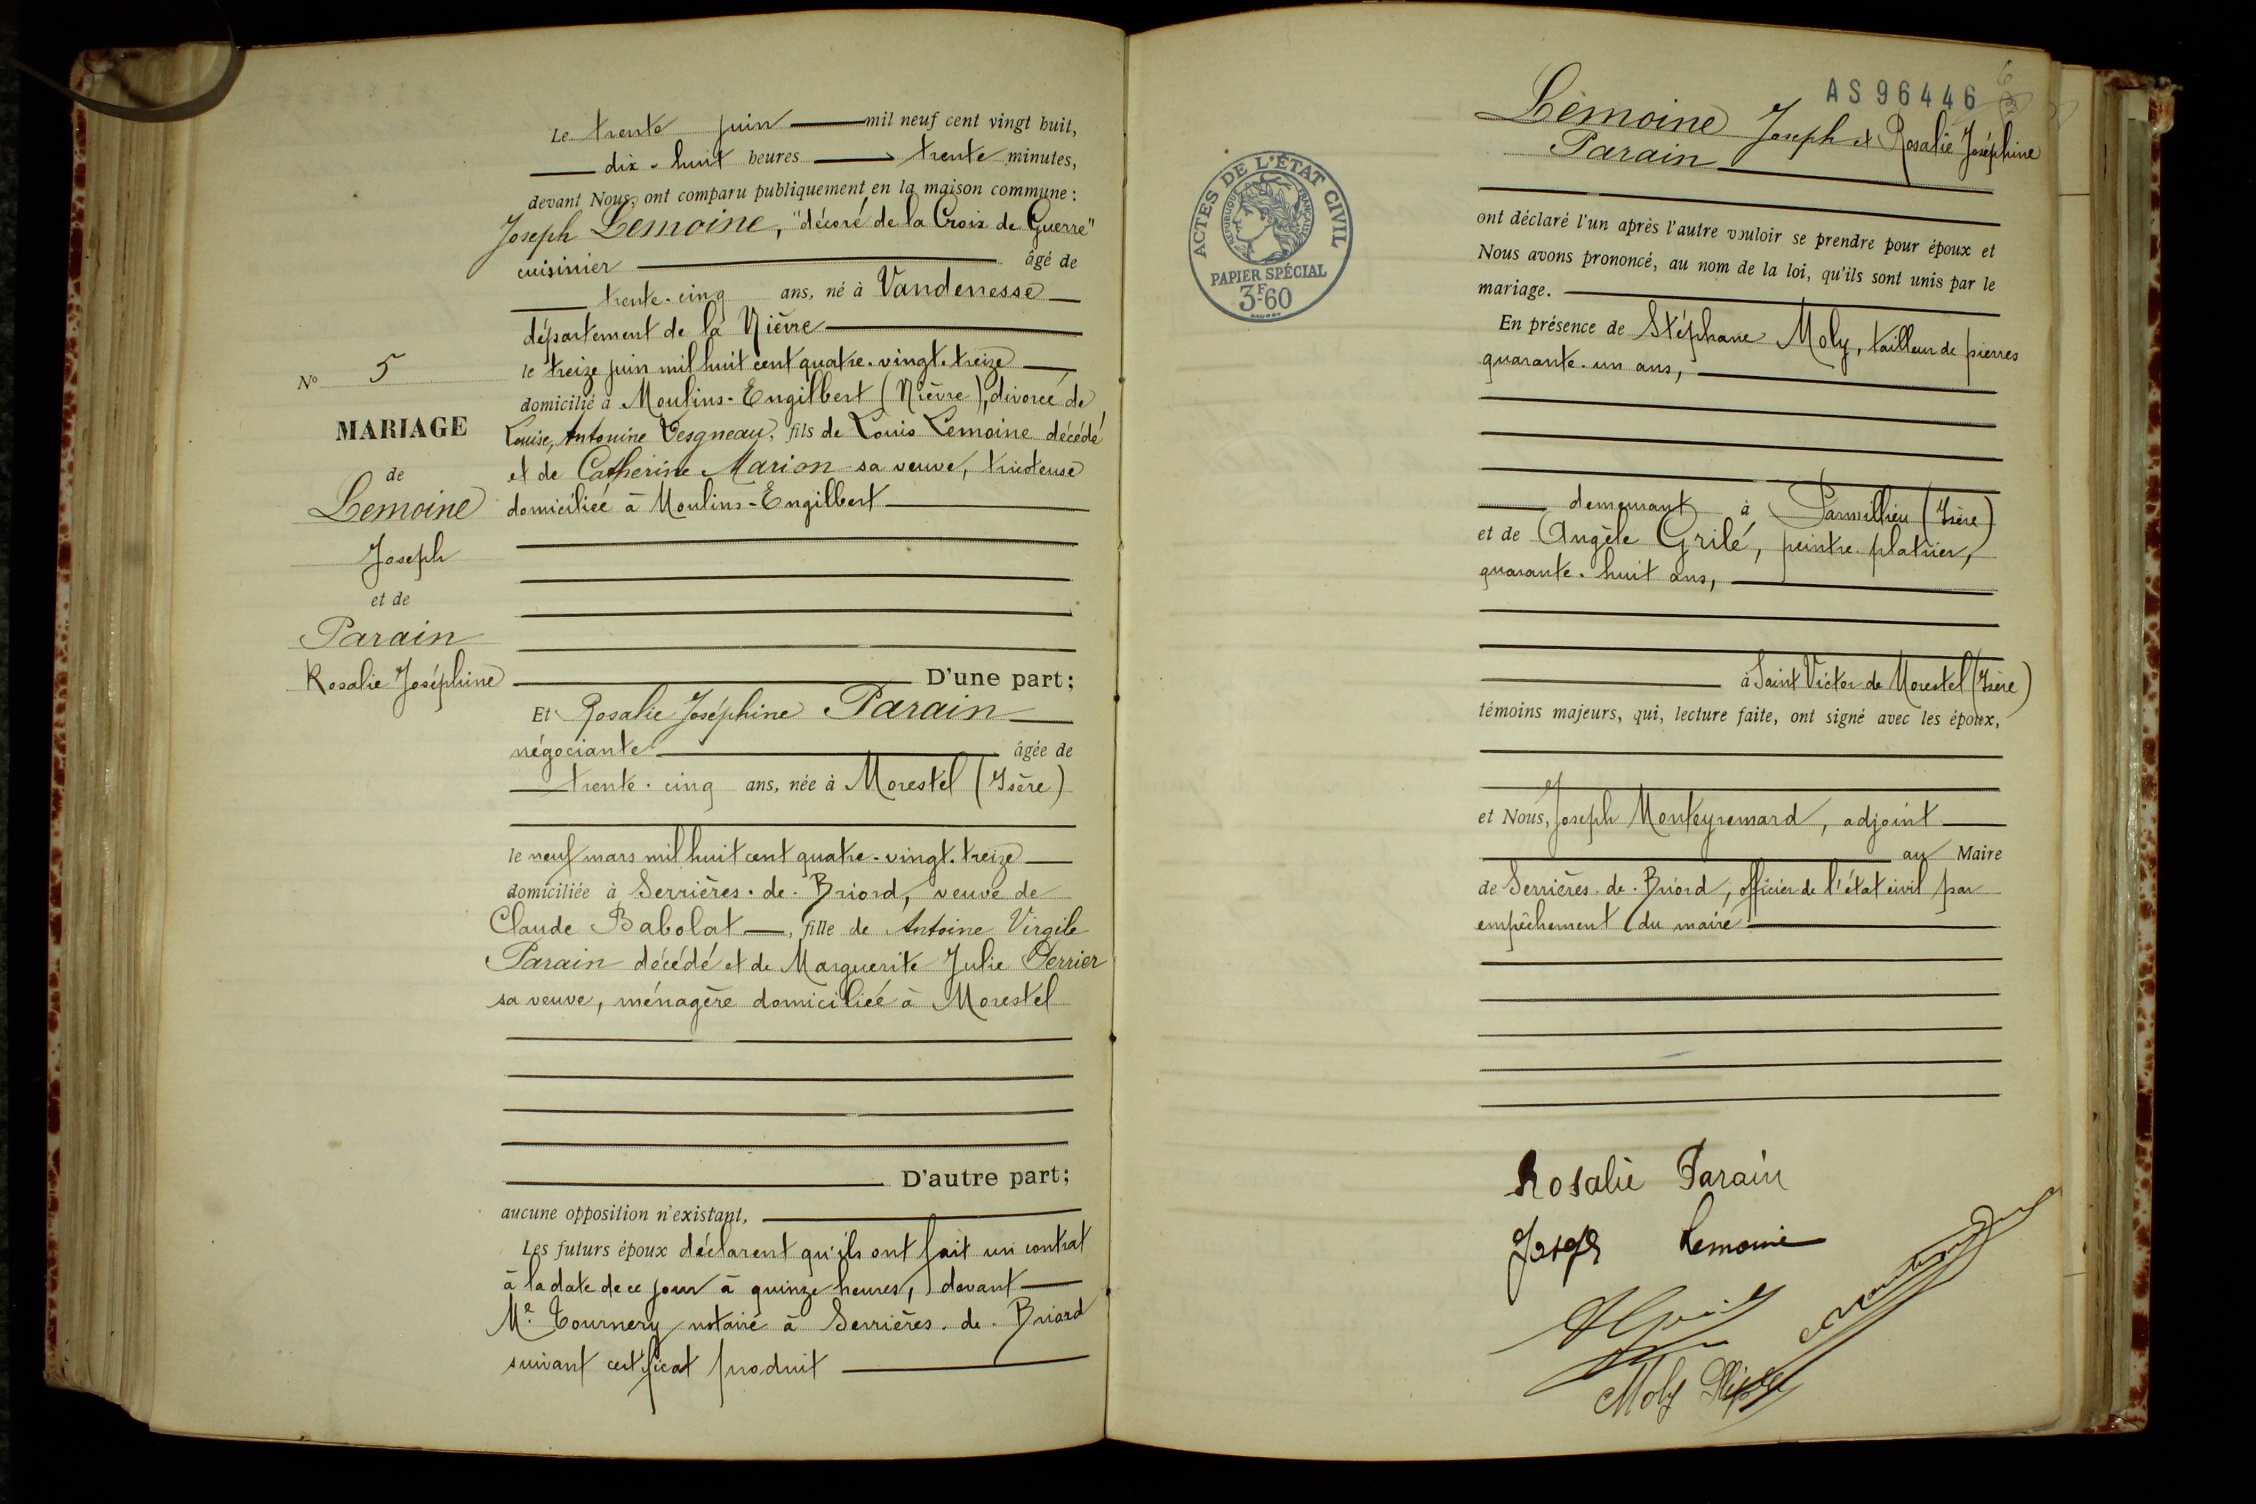 Le trente juin mil neuf cent vingt huit,
dix-huit heures trente minutes,
devant Nous, ont comparu publiquement en la maison commune :
Joseph Lemoine, "décoré de la Croix de Guerre"
cuisinier âgé de
trente-cinq ans, né à Vandenesse
département de la Nièvre
le treize juin mil huit cent quatre-vingt-treize
domicilié à Moulins-Engilbert (Nièvre), divorcé de
Louise, Antonine Vesgneau, fils de Louis Lemoine décédé
et de Catherine Marion sa veuve, tricoteuse
domiciliée à Moulins-Engilbert
D'une part;
Et Rosalie Joséphine Parain
négociante âgée de
trente-cinq ans, née à Morestel (Isère)
le neuf mars mil huit cent quatre-vingt-treize
domiciliée à Serrières-de-Briord, veuve de
Claude Babolat, fille de Antoine Virgile
Parain décédé et de Marguerite Julie Perrier
sa veuve, ménagère domiciliée à Morestel
D'autre part;
aucune opposition n'existant,
Les futurs époux déclarent qu'ils ont fait un contrat
à la date de ce jour à quinze heures, devant
Me Tournery notaire à Serrières-de-Briord
suivant certificat produit
No 5
MARIAGE
de
Lemoine
Joseph
et de
Parain
Rosalie Joséphine
AS96446
ACTES DE L'ÉTAT CIVIL
RÉPUBLIQUE FRANÇAISE
PAPIER SPÉCIAL
3F60
Lemoine Joseph et Rosalie Joséphine
Parain
ont déclaré l'un après l'autre vouloir se prendre pour époux et
Nous avons prononcé, au nom de la loi, qu'ils sont unis par le
mariage.
En présence de Stéphane Moly, tailleur de pierres
quarante-un ans,
demeurant à Parmillieu (Isère)
et de Angèle Grilé, peintre-platrier,
quarante-huit ans,
à Saint Victor de Morestel (Isère)
témoins majeurs, qui, lecture faite, ont signé avec les époux,
et Nous, Joseph Monteyremard, adjoint
au Maire
de Serrières-de-Briord, officier de l'état civil par
empêchement du maire
Rosalie Parain
Joseph Lemoine
Moly